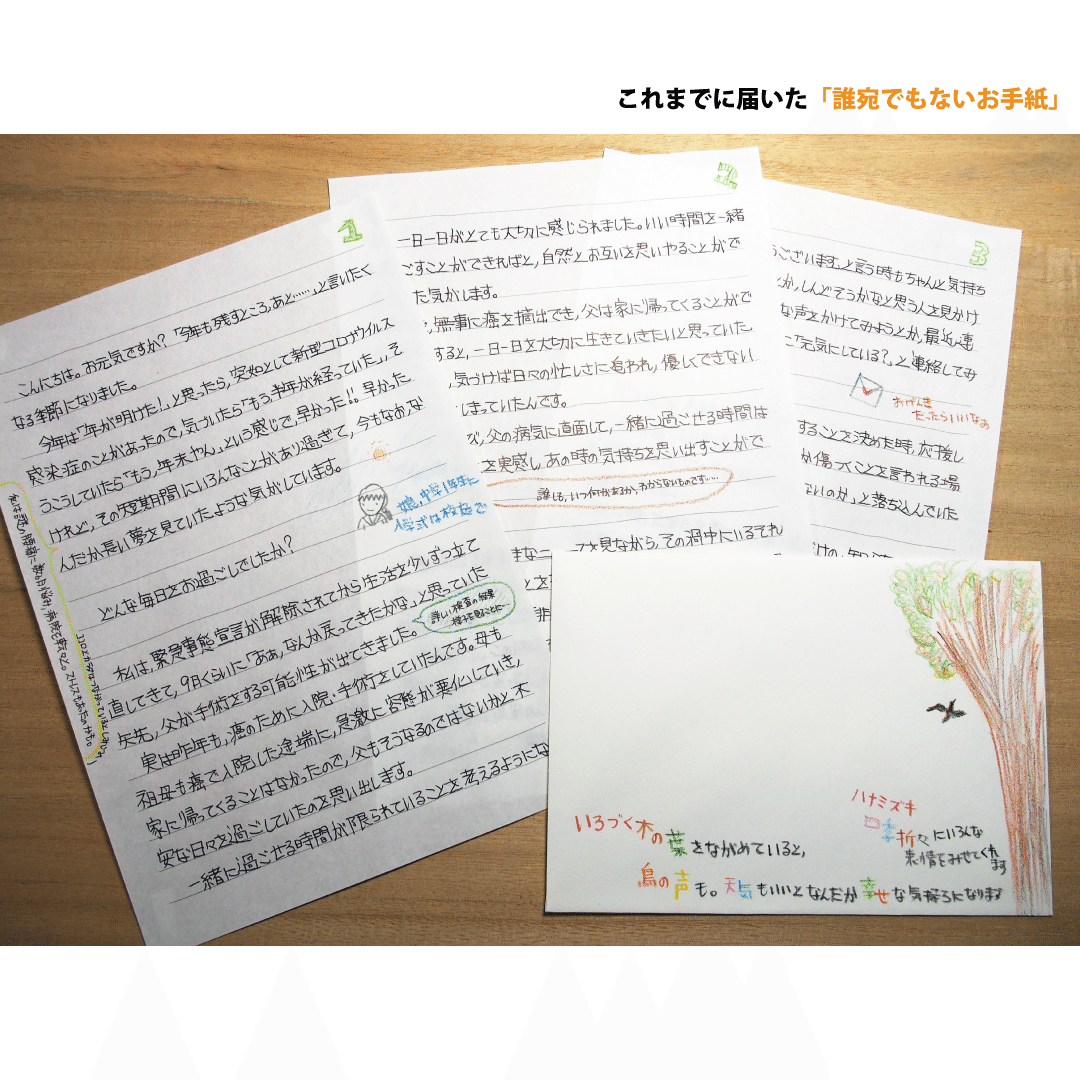 これまでに届いた「誰宛でもないお手紙」
1
こんにちは。お元気ですか?「今年も残すところ、あと……」と言いたく
なる季節になりました。
今年は「年が明けた!」と思ったら、突如として新型コロナウイルス
感染症のことがあったので、気づいたら「もう半年が経っていた」、そ
うこうしていたら「もう、年末やん」という感じで、早かった!! 早かった
けれど、その短期間にいろんなことがあり過ぎて、今もなお、な
んだか長い夢を見ていたような気がしています。
娘、中学1年生に
式は校庭で
どんな毎日をお過ごしでしたか?
私は、緊急事態宣言が解除されてから生活を少しずつ立て
直してきて、9月くらいに「あぁ、なんか戻ってきたかな」と思っていた
矢先、父が手術をする可能性が出てきました。
詳しい検査の結果
様子を見ることに…
実は昨年も、癌のために入院・手術をしていたんです。母も
祖母も癌で入院した途端に、急激に容態が悪化していき、
家に帰ってくることはなかったので、父もそうなるのではないかと、不
安な日々を過ごしていたのを思い出します。
一緒に過ごせる時間が限られていることを考えるようにな
2
一日一日がとても大切に感じられました。いい時間を一緒
ごすことができればと、自然とお互いを思いやることがで
た気がします。
、無事に癌を摘出でき、父は家に帰ってくることがで
すると、一日一日を大切に生きていきたいと思っていた
、気づけば日々の忙しさに追われ、優しくできない
しまっていたんです。
び、父の病気に直面して、一緒に過ごせる時間は
を実感し、あの時の気持ちを思い出すことがで
誰しも、いつ何があるか、わからないものです…
を見ながら、その渦中にいるそれ
3
うございます」と言う時もちゃんと気持ち
とか、しんどそうかなと思う人を見かけ
な声をかけてみようとか、最近、連
に「元気にしている?」と連絡してみ
おげんき
だったらいいなぁ
することを決めた時、応援し
か傷つくことを言われる場
ないのか」と落ち込んでいた
ハナミズキ
四季折々にいろんな
表情をみせてくれ
ます
いろづく木の葉をながめていると、
鳥の声も。天気もいいとなんだか幸せな気持ちになります